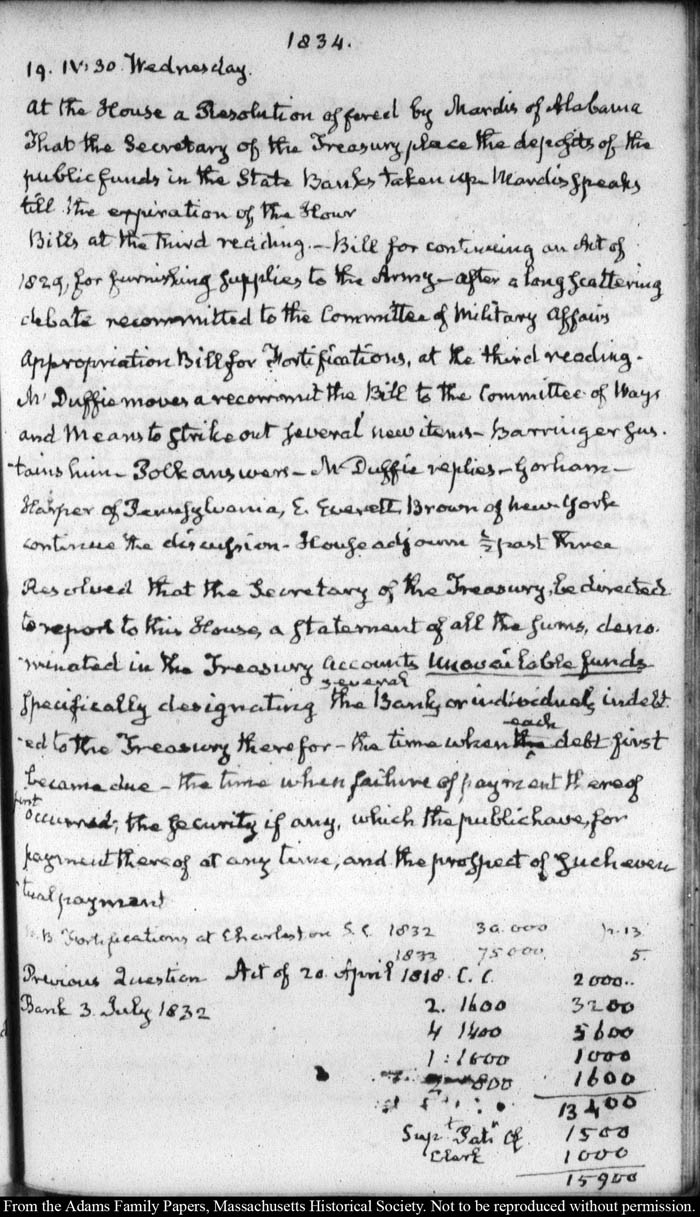 1834.
19. IV:30. Wednesday.
At the House a Resolution offered by Mardis of Alabama
That the Secretary of the Treasury place the deposits of the
public funds in the State Banks taken up - Mardis speaks
till the expiration of the Hour
Bills at the third reading. - Bill for continuing an Act of
1829, for furnishing supplies to the Army - after a long scattering
debate recommitted to the Committee of Military Affairs
Appropriation Bill for Fortifications, at the third reading.
McDuffie moves a recommit the Bill to the Committee of Ways
and Means to strike out several new items - Barringer sus-
tains him - Polk answers - McDuffie replies - Gorham -
Harper of Pennsylvania, E. Everett, Brown of New-York
continue the discussion - House adjourn ½ past three
Resolved that the Secretary of the Treasury, be directed
to report to this House, a statement of all the sums, deno-
minated in the Treasury accounts Unavailable funds
specifically designating the several Banks or individuals indebt-
ed to the Treasury therefor - the time when the each debt first
became due - the time when failure of payment thereof
first occurred; the security if any, which the public have, for
payment thereof at any time; and the prospect of such even
tual payment
N.B. Fortifications at Charleston S.C. 1832 30.000 p. 13
1833 75000. 5.
Previous Question Act of 20. April 1818. C.C. 2000..
Bank 3. July 1832 2. 1600 3200
4 1400 5600
1: 1000 1000
800 1600
13400
Supt Patt Of. 1500
Clerk 1000
15900
From the Adams Family Papers, Massachusetts Historical Society. Not to be reproduced without permission.